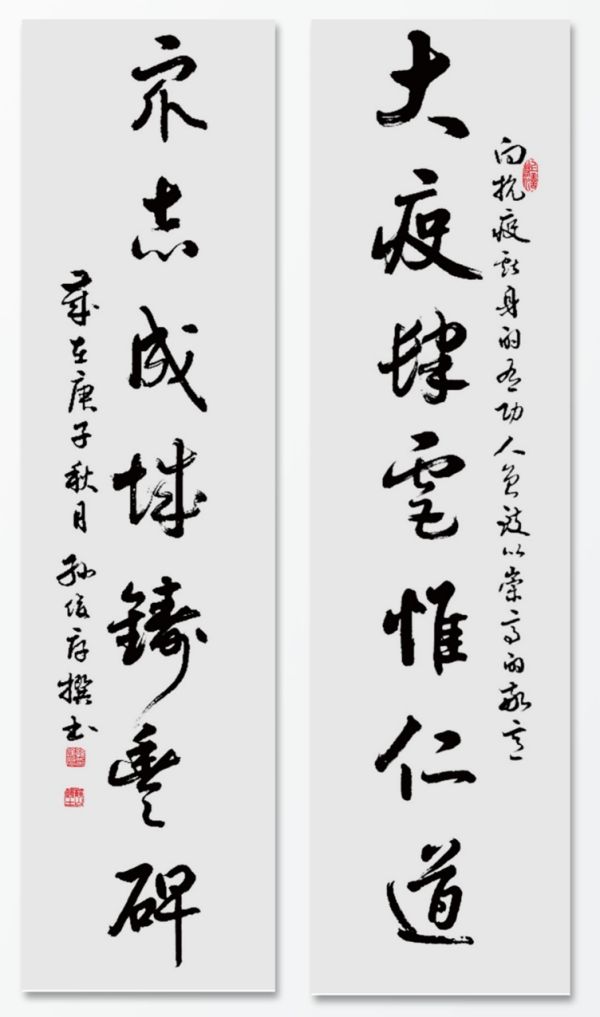 向抗疫献身的有功人员致以崇高的敬意
大疫肆虐惟仁道
众志成城鑄豐碑
歲在庚子秋月 孙存撰书